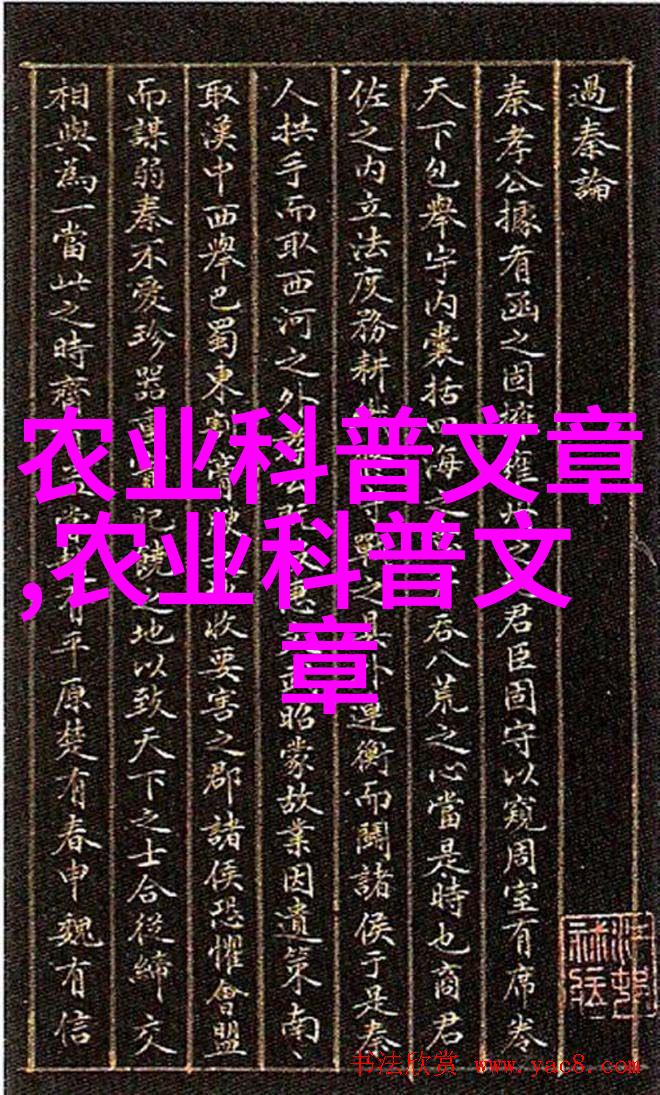 過秦論
秦孝公據有函之固擁雍州之君臣固守以窺周室有席卷
天下包舉宇内囊括海之吞八荒之心當是時也商君
佐之内立法度務耕之具外連衡而鬪諸侯于是秦
人拱手而取西河之外惠昭蒙故業因遺策南、
取漢中西舉巴蜀東割膏收要害之郡諸侯恐懼會盟
而謀弱秦不愛珍器重寶肥饒之地以致天下之士合從締交
相與為一當此之時齊有平原楚有春申魏有信
农业科普文章
,农业科普文
章
书法欣赏 www.yac8.com